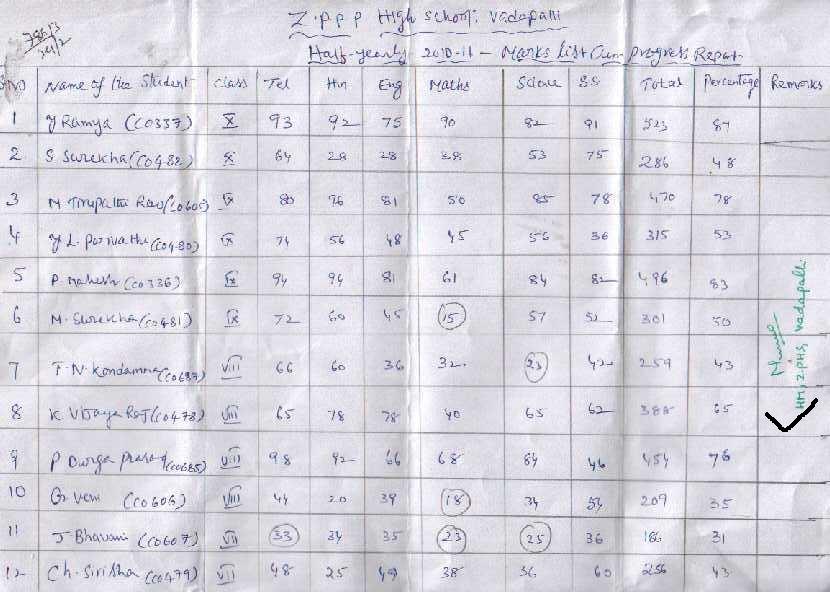 Z.P.P.P High School, Vadapalli
Half-yearly 2010-11 - Marks List Cum progress Report
S.NO Name of the Student class Tel Hin Eng Maths Science S.S Total Percentage Remarks
1 Y Ramya (CO337) X 93 92 75 90 82 91 523 87
2 S Surekha (CO482) X 64 28 28 38 53 75 286 48
3 N Tirupathi Rao (CO605) IX 80 76 81 50 85 78 470 78
4 Y L. Parvathi (CO480) IX 74 56 48 45 56 36 315 53
5 P. Mahesh (CO336) IX 94 94 81 61 84 82 496 83
6 M. Surekha (CO481) IX 72 60 45 15 57 52 301 50
7 T. N. Kondamma VIII 66 60 36 32 23 42 259 43
8 K Vijaya Raj (CO478) VIII 65 78 78 40 65 62 388 65
9 P Durga Prasad (CO685) VIII 98 92 66 68 84 46 454 76
10 G. Veni (CO606) VIII 44 20 39 18 34 54 209 35
11 J Bhavani (CO607) VII 33 34 35 23 25 36 186 31
12 Ch. Sirisha (CO479) VII 48 25 49 38 36 60 256 43
HM, Z.PHS, Vadapalli